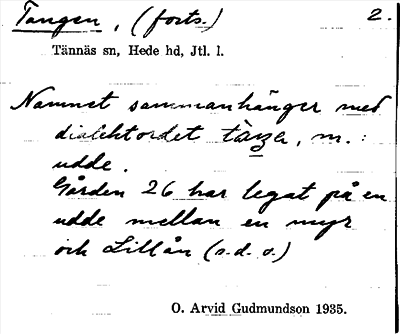 Tangen, (forts.) 2.
Tännäs sn, Hede hd, Jtl. l.
Namnet sammanhänger med
dialektordet tàŋa, m.:
udde.
Gården 26 har legat på en
udde mellan en myr
och Lillån (s.d.o.)
O. Arvid Gudmundson 1935.